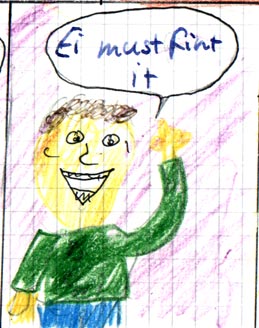 Ei must fint
it